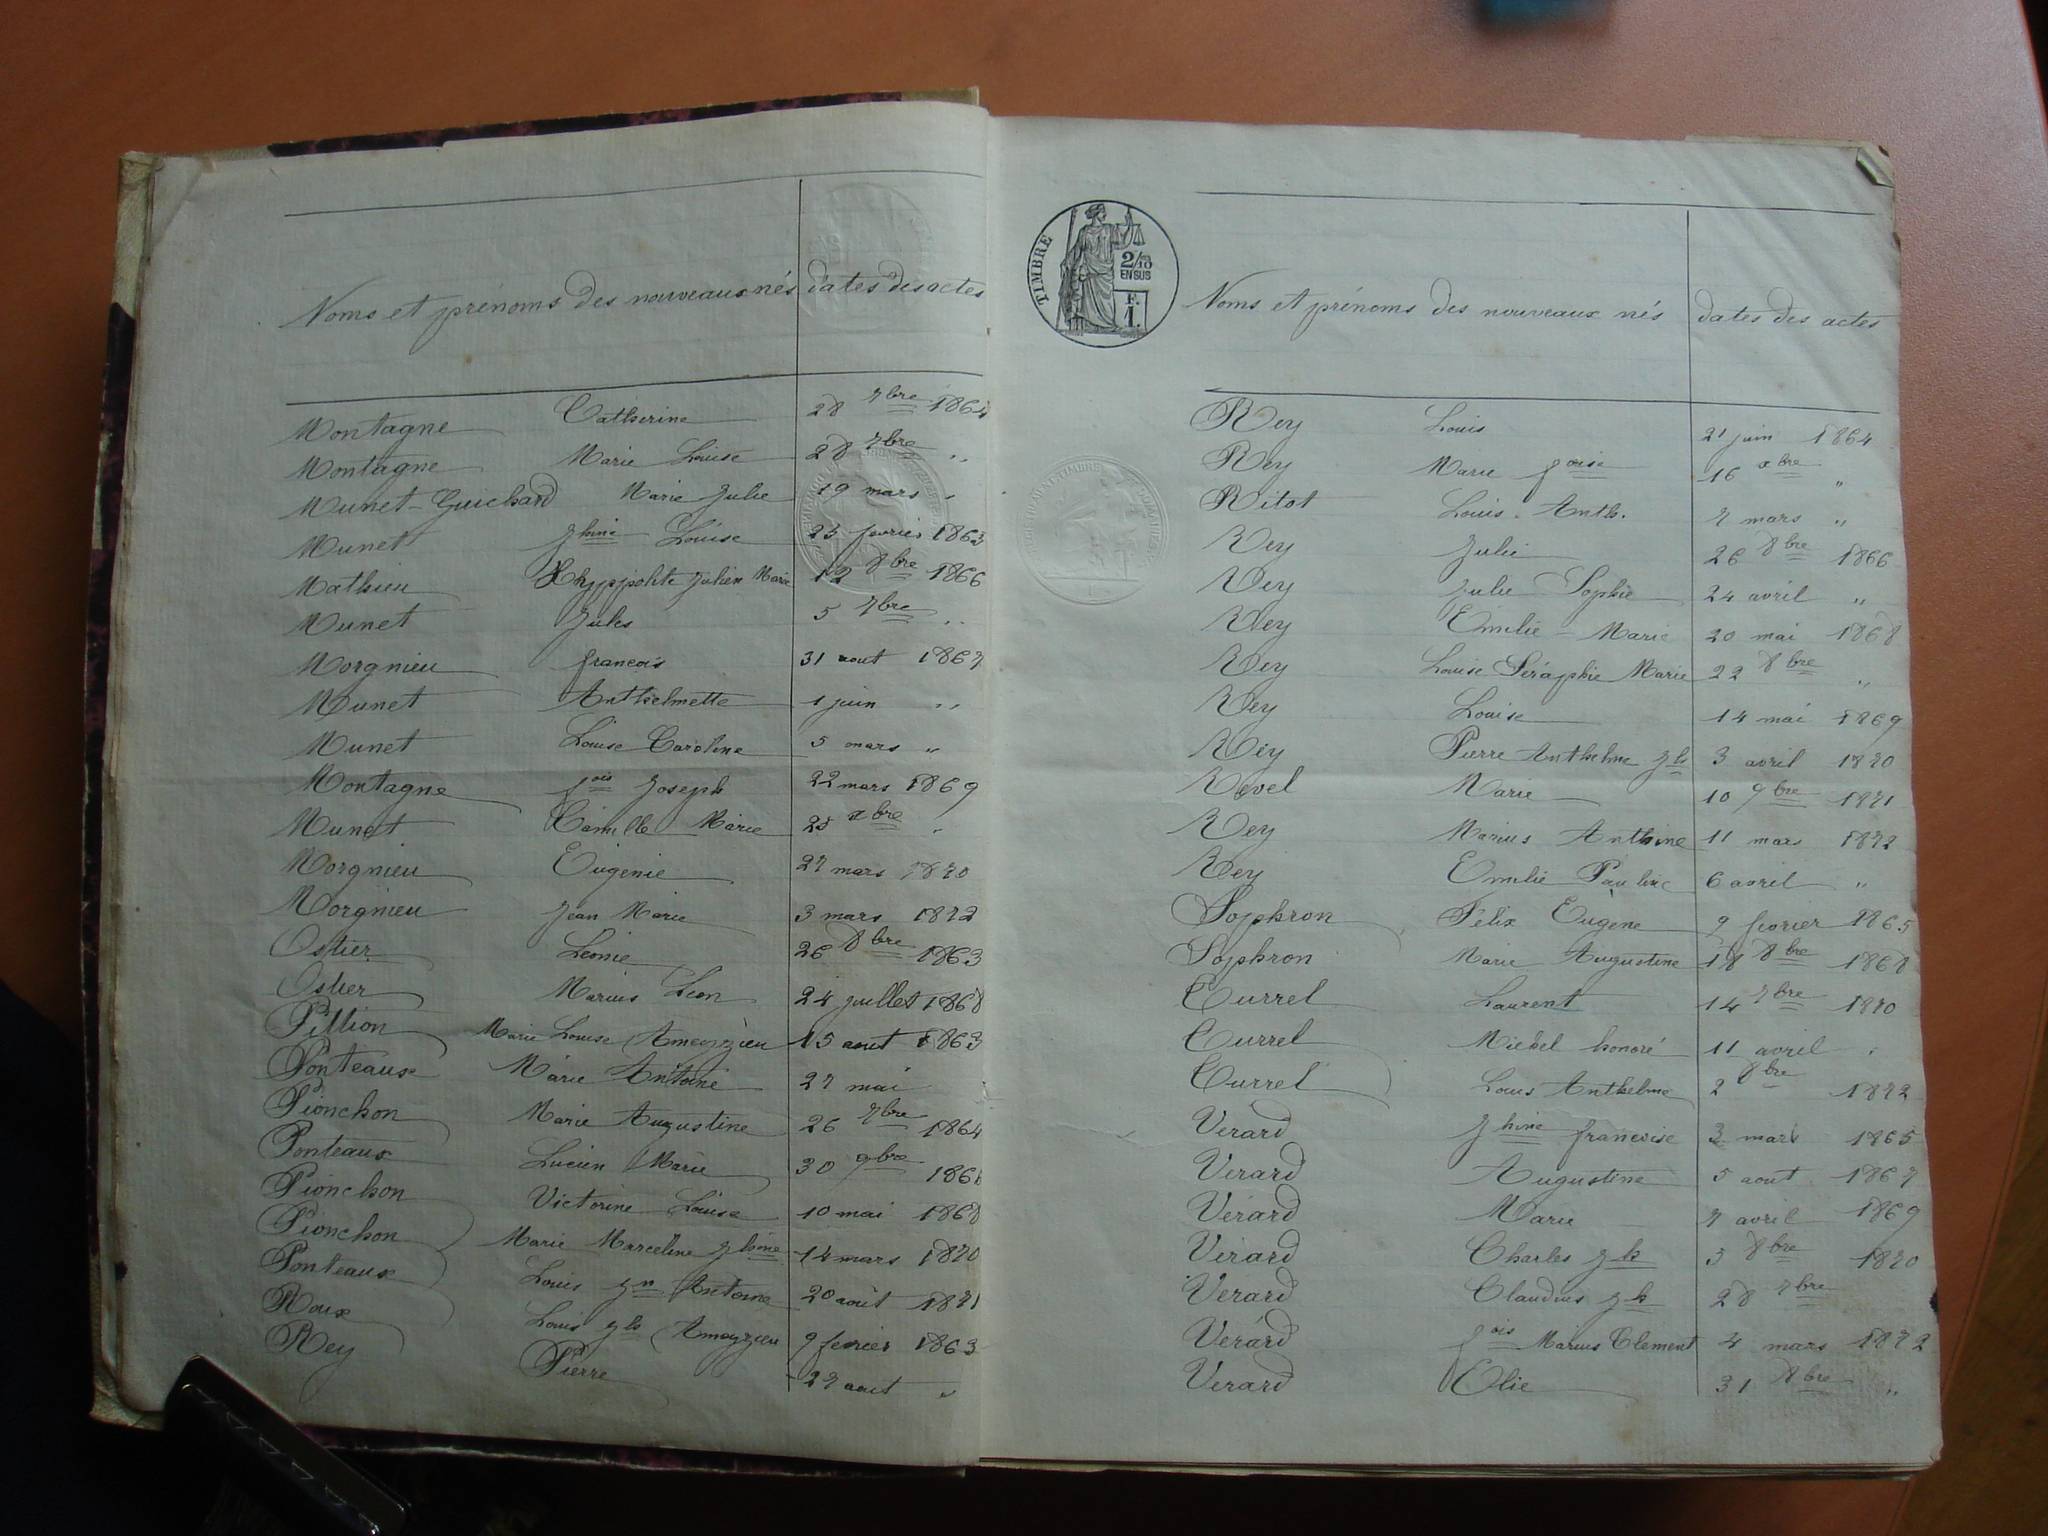 Noms et prénoms des nouveaux nés dates des actes
Montagne Catherine 28 7bre 1864
Montagne Marie Louise 28 7bre "
Munet-Guichard Marie Julie 19 mars "
Munet Jhine Louise 25 fevrier 1863
Mathieu Hyppolite Julien Marie 12 8bre 1866
Munet Jules 5 7bre "
Morgnieu françois 31 aout 1867
Munet Anthelmette 1 juin "
Munet Louise Caroline 5 mars "
Montagne fois Joseph 22 mars 1869
Munet Camille Marie 25 xbre "
Morgnieu Eugénie 27 mars 1870
Morgnieu Jean Marie 3 mars 1872
Ostier Leonie 26 8bre 1863
Ostier Marius Leon 24 juillet 1868
Pillion Marie Louise Ameyzieu 15 aout 1863
Ponteaux Marie Antoine 27 mai
Pionchon Marie Augustine 26 7bre 1864
Ponteaux Lucien Marie 30 9bre
Pionchon Victorine Louise 10 mai 1868
Pionchon Marie Marceline Jhine 14 mars 1870
Ponteaux Louis Antoine 20 août 1871
Roux Louis Jh Ameyzieu 9 fevrier 1863
Rey Pierre 27 aout "
TIMBRE
2/10
EN SUS
F.
1.
Noms et prénoms des nouveaux nés dates des actes
Rey Louis 21 juin 1864
Rey Marie foise 16 xbre "
Ritot Louis. Anth. 7 mars "
Rey Julie 26 8bre 1866
Rey Julie Sophie 24 avril "
Rey Emilie-Marie 20 mai 1868
Rey Louise Séraphie Marie 22 8bre "
Rey Louise 14 mai 1869
Rey Pierre Anthelme Jh 3 avril 1870
Revel Marie 10 9bre 1871
Rey Marius 11 mars 1872
Rey Emilie Pauline 6 avril "
Sophron Félix Eugène 9 fevrier 1865
Sophron Marie Augustine 18 8bre 1868
Currel Laurent 14 7bre 1870
Currel Michel honoré 11 avril "
Currel Louis Anthelme 2 8bre 1872
Verard Jhine francoise 3 mars 1865
Verard Augustine 5 aout 1867
Vérard Marie 7 avril 1869
Vérard Charles Jh 3 8bre 1870
Verard Claudius Jh 28 7bre
Verard fois Marius Clement 4 mars 1872
Verard Elie 31 8bre "